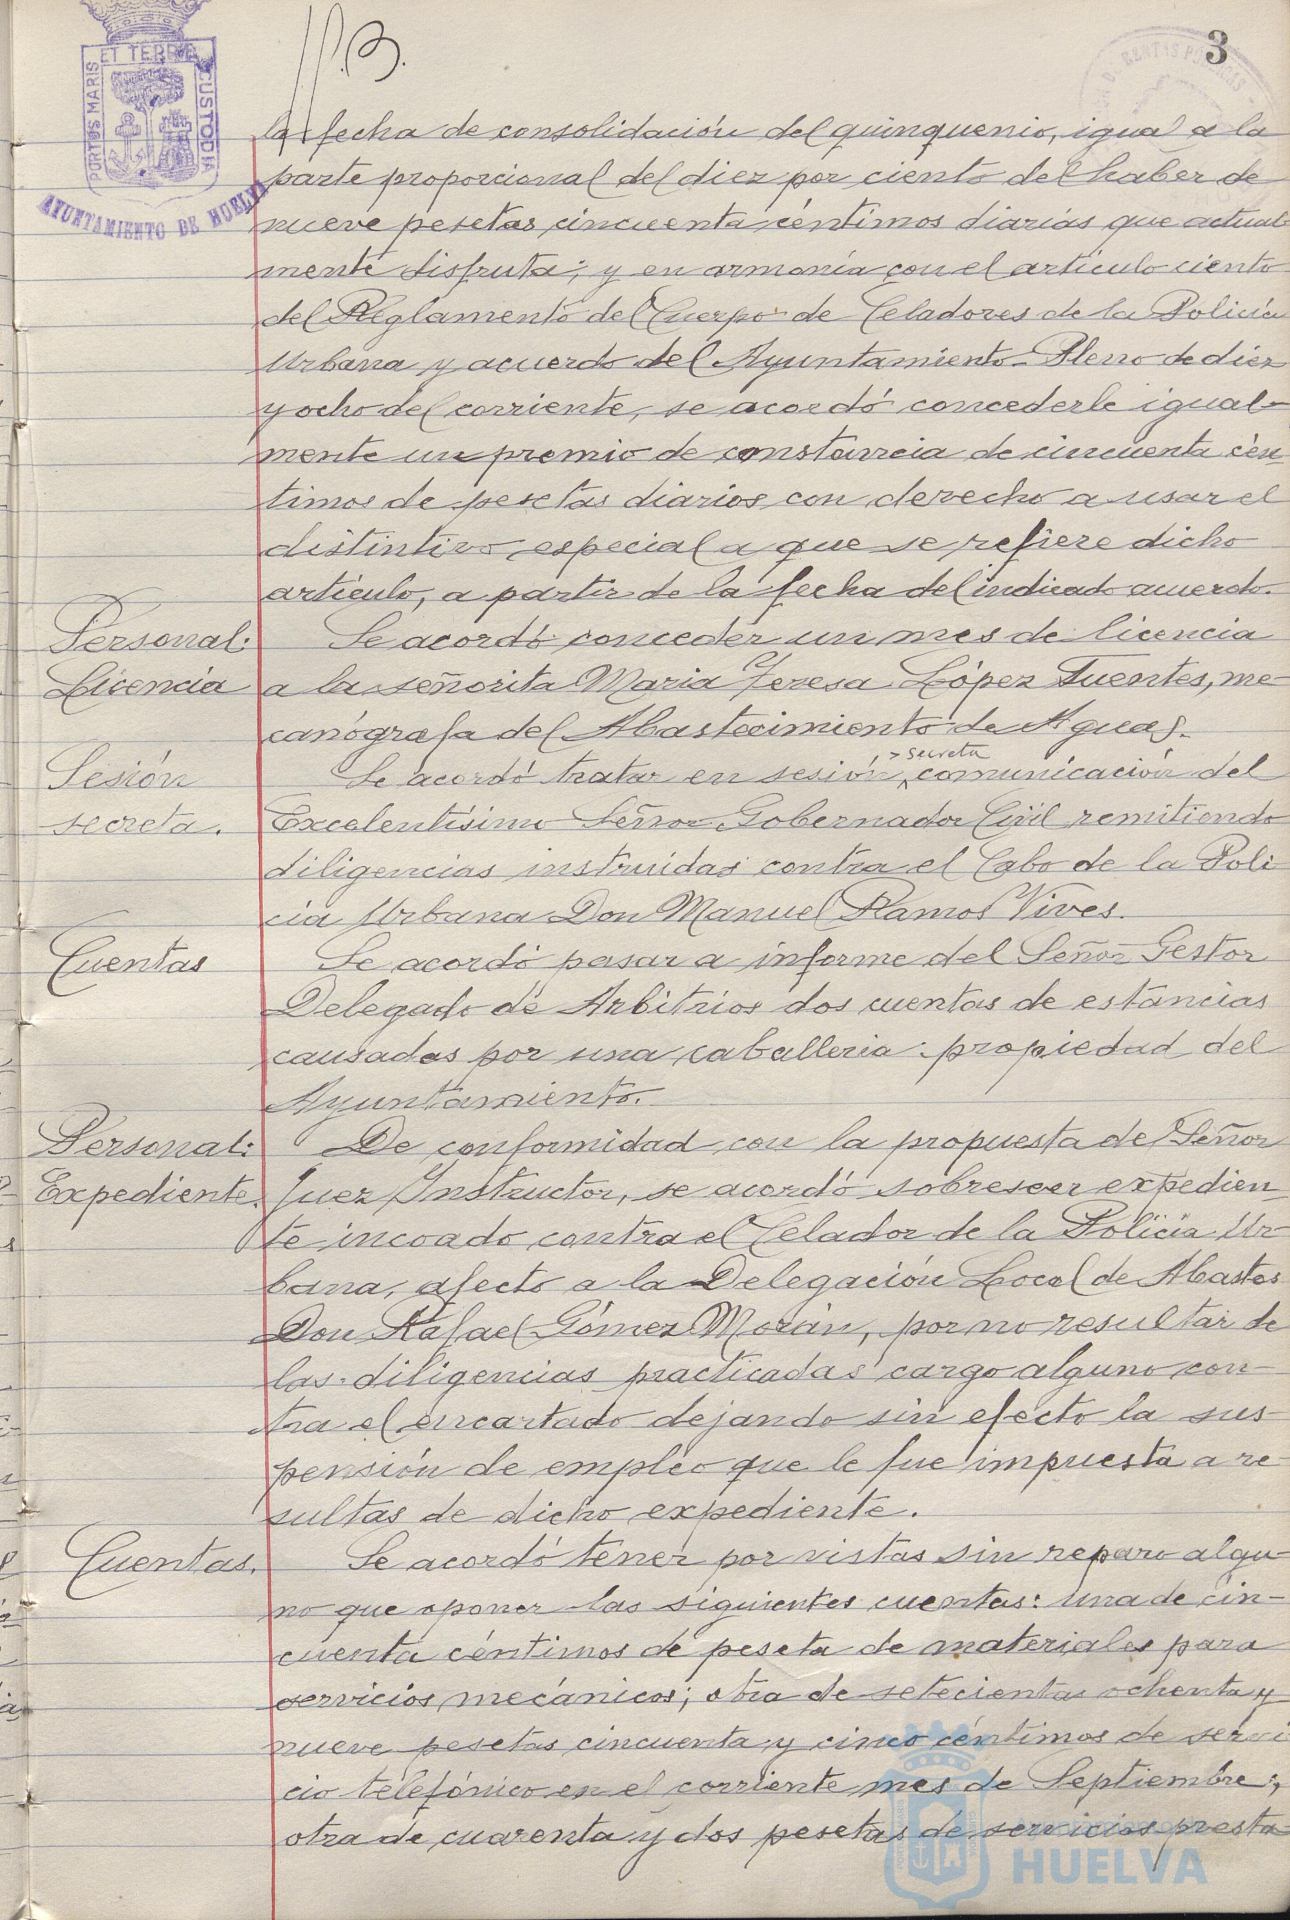 3
PORTUS MARIS ET TERRAE CUSTODIA
AYUNTAMIENTO DE HUELVA
la fecha de consolidación del quinquenio, igual a la
parte proporcional del diez por ciento del haber de
nueve pesetas cincuenta céntimos diarias que actual-
mente disfruta; y en armonía con el artículo ciento
del Reglamento del Cuerpo de Celadores de la Policía
Urbana y acuerdo del Ayuntamiento Pleno de diez
y ocho del corriente, se acordó concederle igual-
mente un premio de constancia de cincuenta cén-
timos de pesetas diarios con derecho a usar el
distintivo especial a que se refiere dicho
artículo, a partir de la fecha del indicado acuerdo.
Personal: Se acordó conceder un mes de licencia
Licencia a la señorita Maria Teresa López Fuentes, me-
canógrafa del Abastecimiento de Aguas.
secreta
Sesión Se acordó tratar en sesión, comunicación del
secreta. Excelentísimo Señor Gobernador Civil remitiendo
diligencias instruidas contra el Cabo de la Poli
cia Urbana Don Manuel Ramos Vives.
Cuentas Se acordó pasar a informe del Señor Gestor
Delegado de Arbitrios dos cuentas de estancias
causadas por una caballeria propiedad del
Ayuntamiento.
Personal: De conformidad con la propuesta del Señor
Expediente. Juez Instructor, se acordó sobreseer expedien-
te incoado contra el Celador de la Policía Ur-
bana, afecto a la Delegación Local de Abastos
Don Rafael Gómez Morán, por no resultar de
las diligencias practicadas cargo alguno con-
tra el encartado dejando sin efecto la sus-
pensión de empleo que le fue impuesta a re-
sultas de dicho expediente.
Cuentas. Se acordó tener por vistas sin reparo algu-
no que oponer las siguientes cuentas: una de cin-
cuenta céntimos de peseta de materiales para
servicios mecánicos; otra de setecientas ochenta y
nueve pesetas cincuenta y cinco céntimos de servi
cio telefónico en el corriente mes de Septiembre;
otra de cuarenta y dos pesetas de servicios presta-
HUELVA